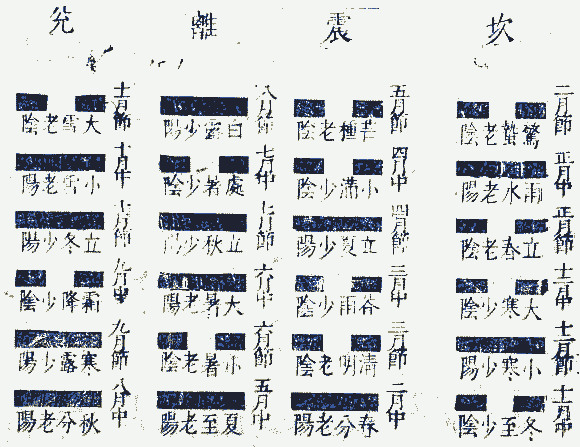 坎
二月節
驚蟄老陰
正月中
雨水老陽
正月節
立春老陰
十二月中
大寒少陰
十二月節
小寒少陽
十一月中
冬至少陰
震
五月節
芒種老陰
四月中
小滿少陰
四月節
立夏少陽
三月中
谷雨少陰
三月節
清明老陰
二月中
春分老陽
離
八月節
白露少陽
七月中
處暑少陰
七月節
立秋少陽
六月中
大暑老陽
六月節
小暑老陰
五月中
夏至老陽
兌
十一月節
大雪老陰
十月中
小雪老陽
十月節
立冬少陽
九月中
霜降少陰
九月節
寒露少陽
八月中
秋分老陽